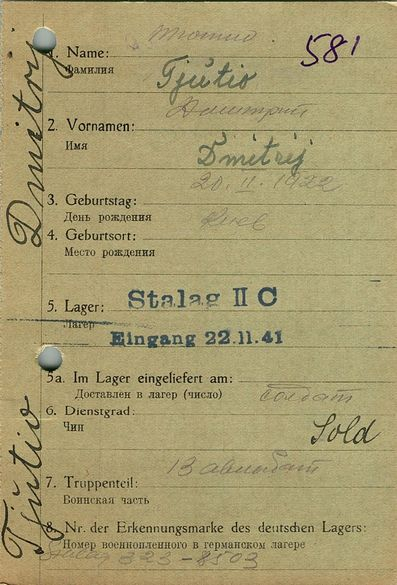 581
1. Name:
Фамилия
Tjutio
Дмитрий
2. Vornamen:
Имя
Dmitrij
20. II. 1922
3. Geburtstag:
День рождения
Киев
4. Geburtsort:
Место рождения
5. Lager: Stalag II C
Лагер
Eingang 22.11.41
5a. Im Lager eingeliefert am:
Доставлен в лагер (число)
солдат
6. Dienstgrad:
Чин
Sold
13 авиабат
7. Truppenteil:
Воинская часть
8. Nr. der Erkennungsmarke des deutschen Lagers:
Номер военнопленного в германском лагере
323-8503
Dmitrij
Tjutio